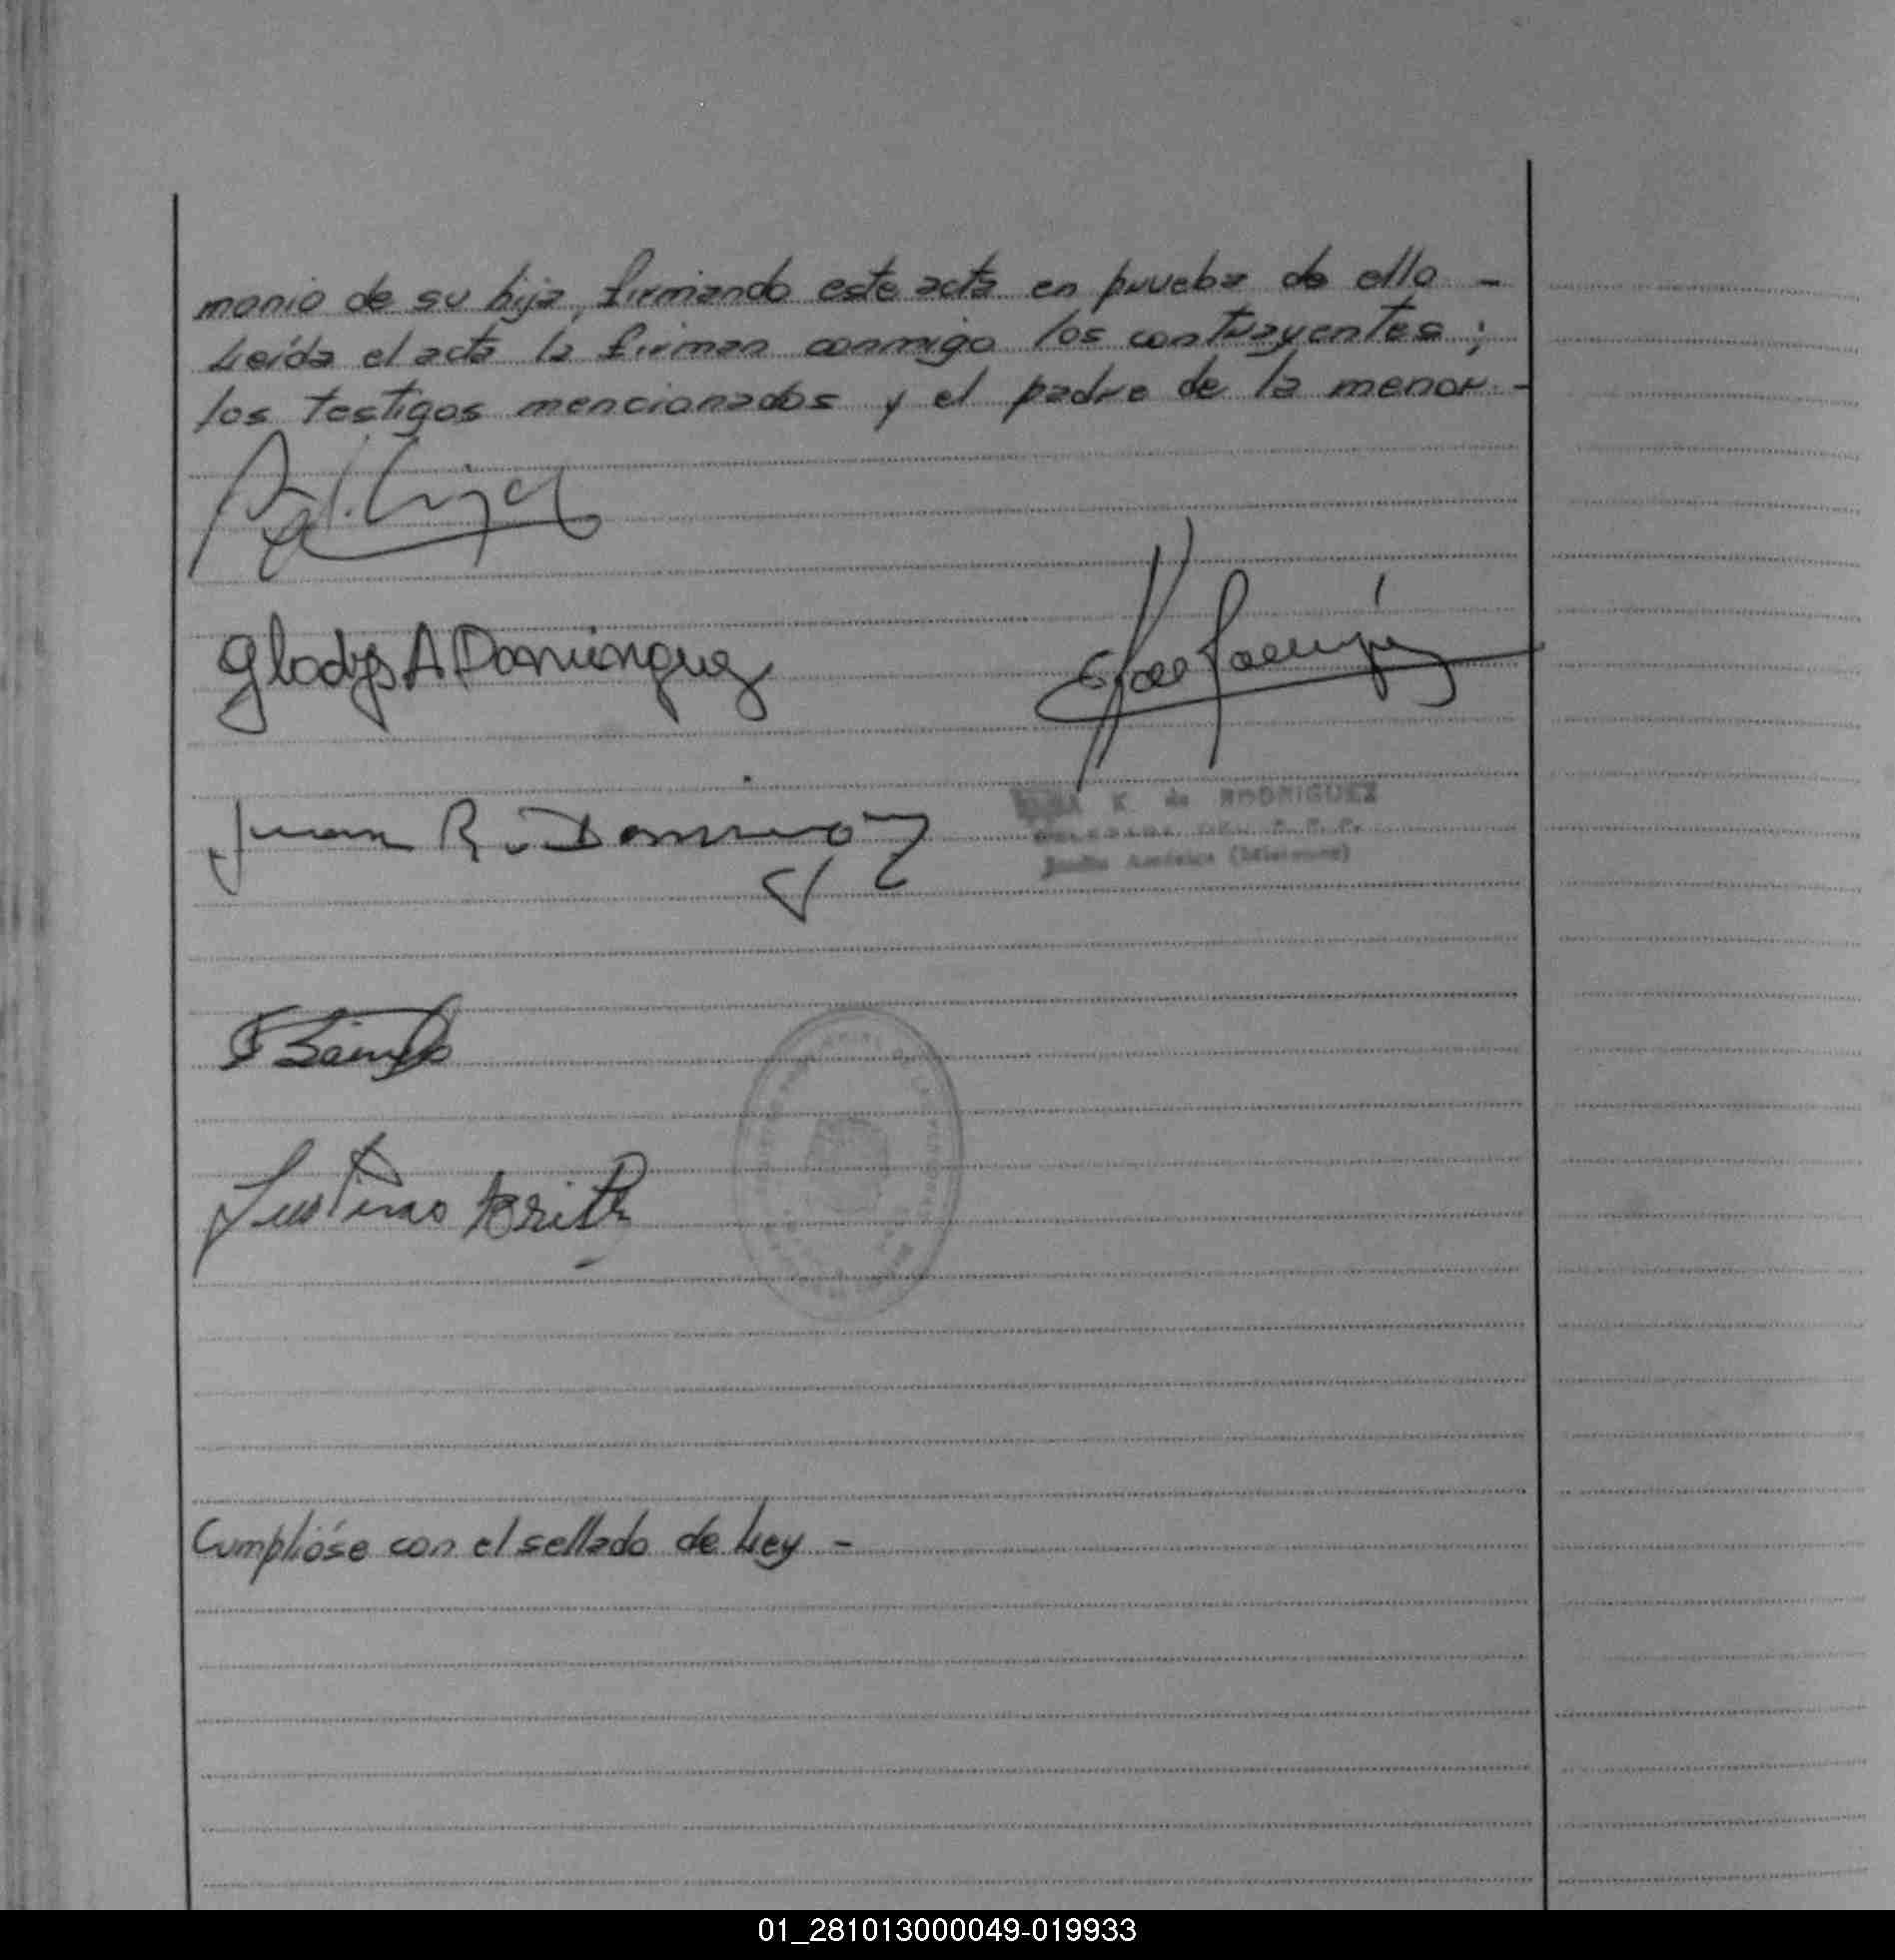 monio de su hija, firmando este acta en prueba de ello -
Leída el acta la firman conmigo los contrayentes;
los testigos mencionados y el padre de la menor -
Gladys A Dominguez
Juan R. Dominguez
K. de RODRIGUEZ
(Misiones)
Justino Brite
Cumplióse con el sellado de Ley -
01_281013000049-019933